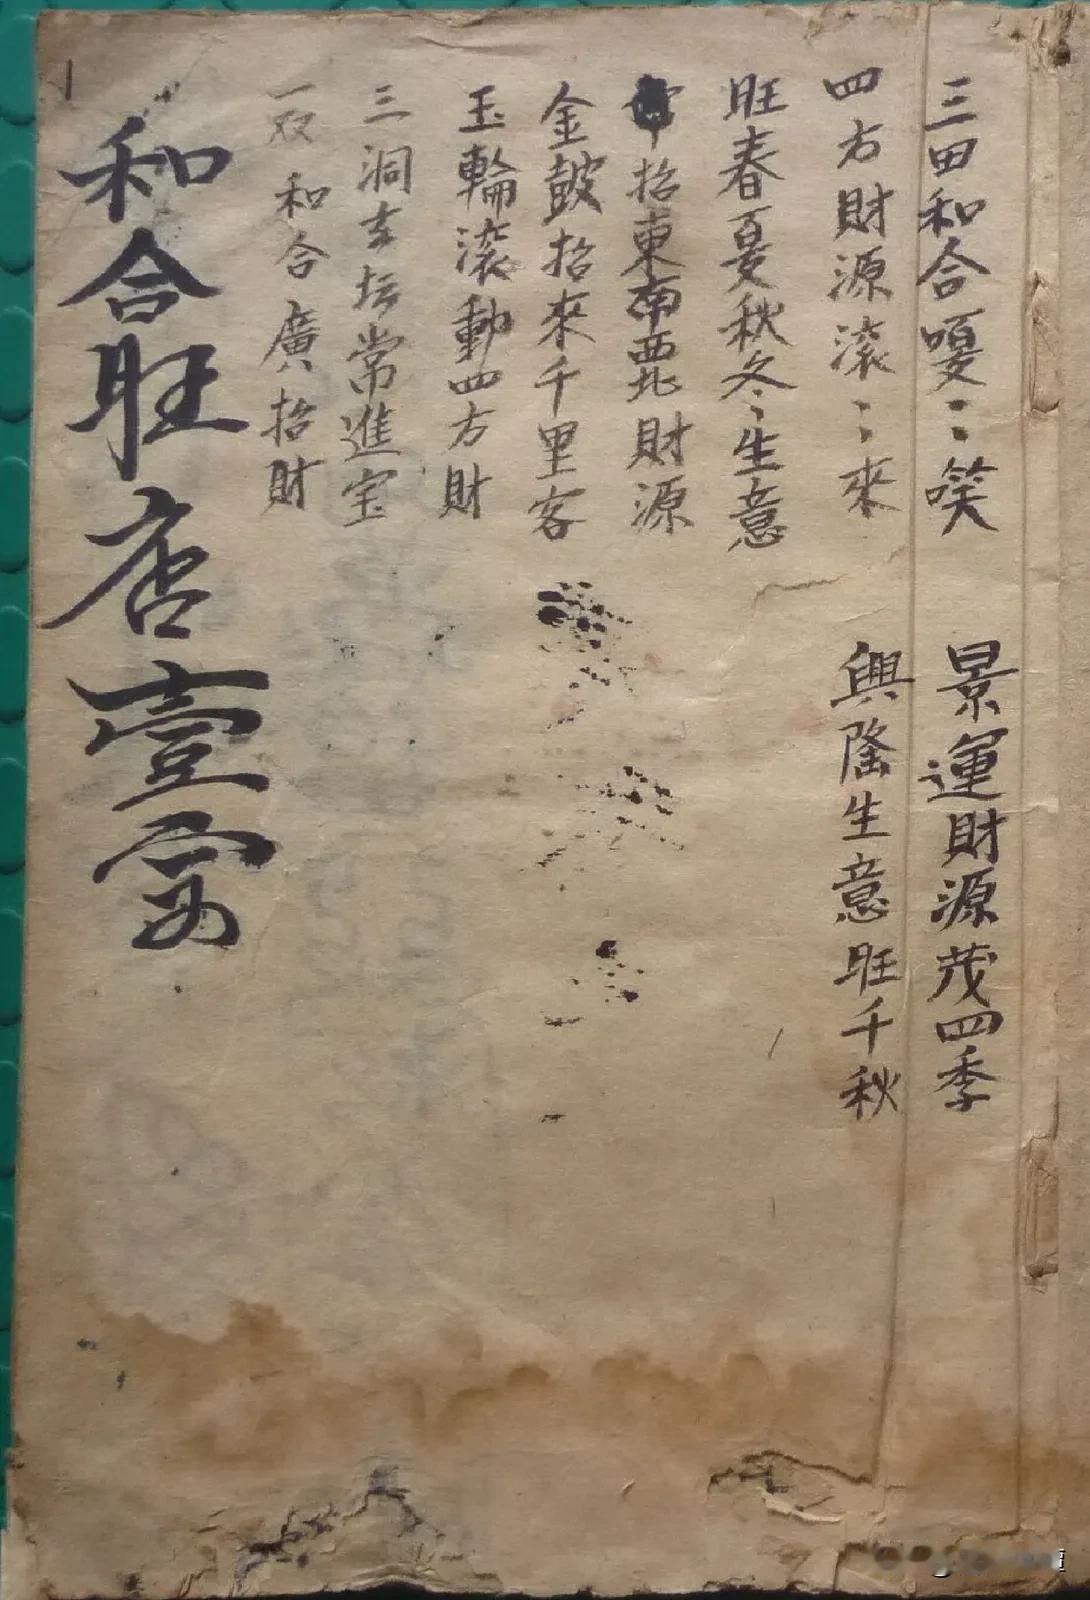 三田和合嗄〻笑
景運財源茂四季
四方財源滚〻來
興隆生意旺千秋
旺春夏秋冬〻生意
招東南西北財源
金皷招來千里客
玉輪滚動四方財
三洞玄坛常進宝
一双和合廣招財
和合旺店壹